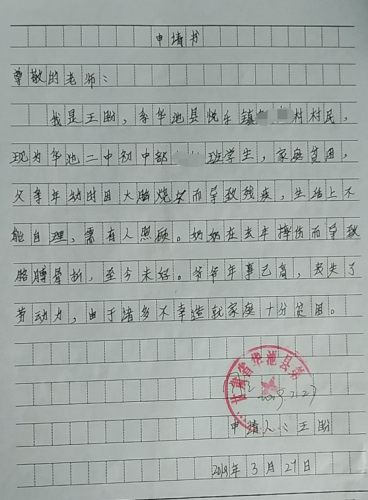 申请书
尊敬的老师：
我是王刚，系华池县悦乐镇村村民，
现为华池二中初中部班学生，家庭贫困，
父亲年幼时因大脑烧坏而导致残疾，生活上不
能自理，需有人照顾。奶奶在去年摔伤而导致
胳膊骨折，至今未好。爷爷年事已高，丧失了
劳动力，由于诸多不幸造就家庭十分贫困。
甘肃省华池县
申请人：王刚
2019年3月27日